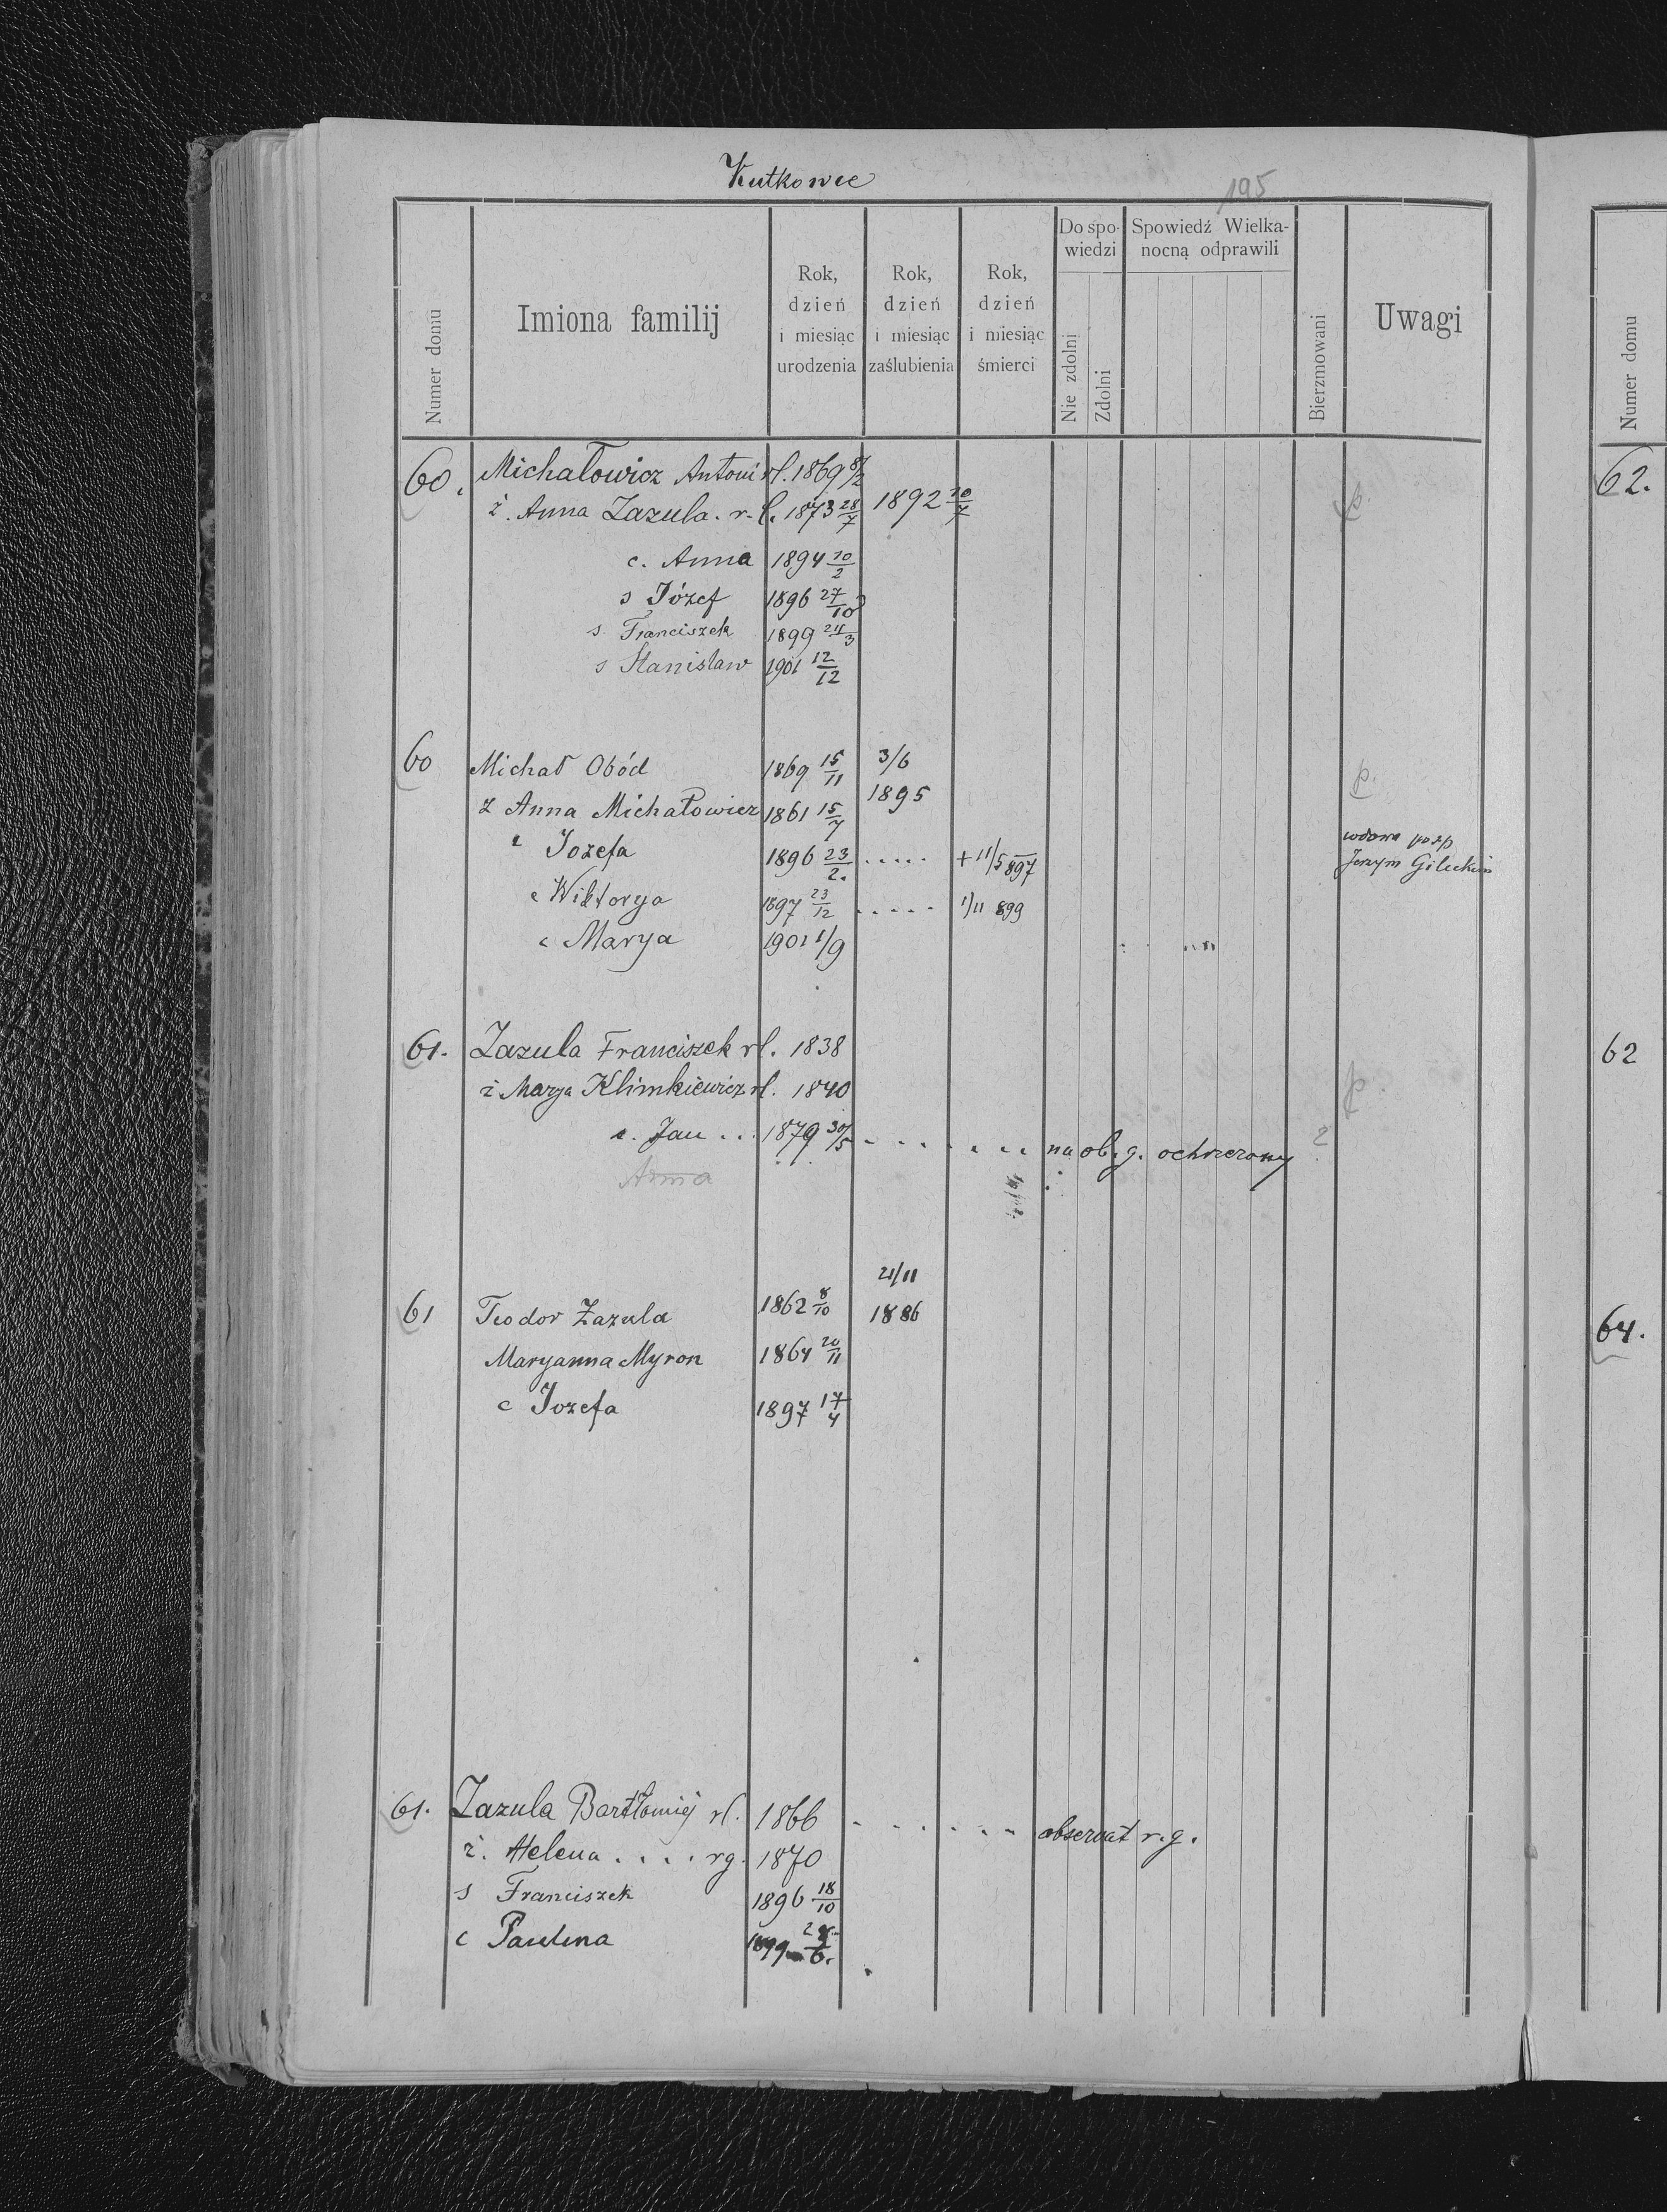 Kutkowce
195
Numer domu
Imiona familij
Rok, dzień i miesiąc urodzenia
Rok, dzień i miesiąc zaślubienia
Rok, dzień i miesiąc śmierci
Do spowiedzi
Nie zdolni
Zdolni
Spowiedź Wielkanocną odprawili
Bierzmowani
Uwagi
60. Michałowicz Antoni rl. 1869 8/2
ż. Anna Zazula. r. l. 1873 28/7 1892 10/7 p.
c. Anna 1894 10/2
s Józef 1896 27/10
s. Franciszek 1899 24/3
s Stanisław 1901 12/12
60 Michał Obód 1869 15/11 3/6 p.
ż Anna Michałowicz 1861 15/7 1895
c Jozefa 1896 23/2. ..... + 11/5 897 wdowa po
Jerzym Gileckim
c Wiktorya 1897 23/12 ..... 1/11 899
c Marya 1901 1/9
61. Zazula Franciszek rl. 1838
ż Marya Klimkiewicz rl. 1840 p
s. Jan ... 1879 30/5 - - - - - - - na ob. g. ochrzczony ?
Anna
21/11
61 Teodor Zazula 1862 8/10 1886
Maryanna Myron 1864 20/11
c Jozefa 1897 17/4
61. Zazula Bartłomiej rl. 1866 - - - - - - - obserwat r. g.
ż. Helena .... rg. 1870
s Franciszek 1896 18/10
c Paulina 1899
Numer domu
62.
62
64.